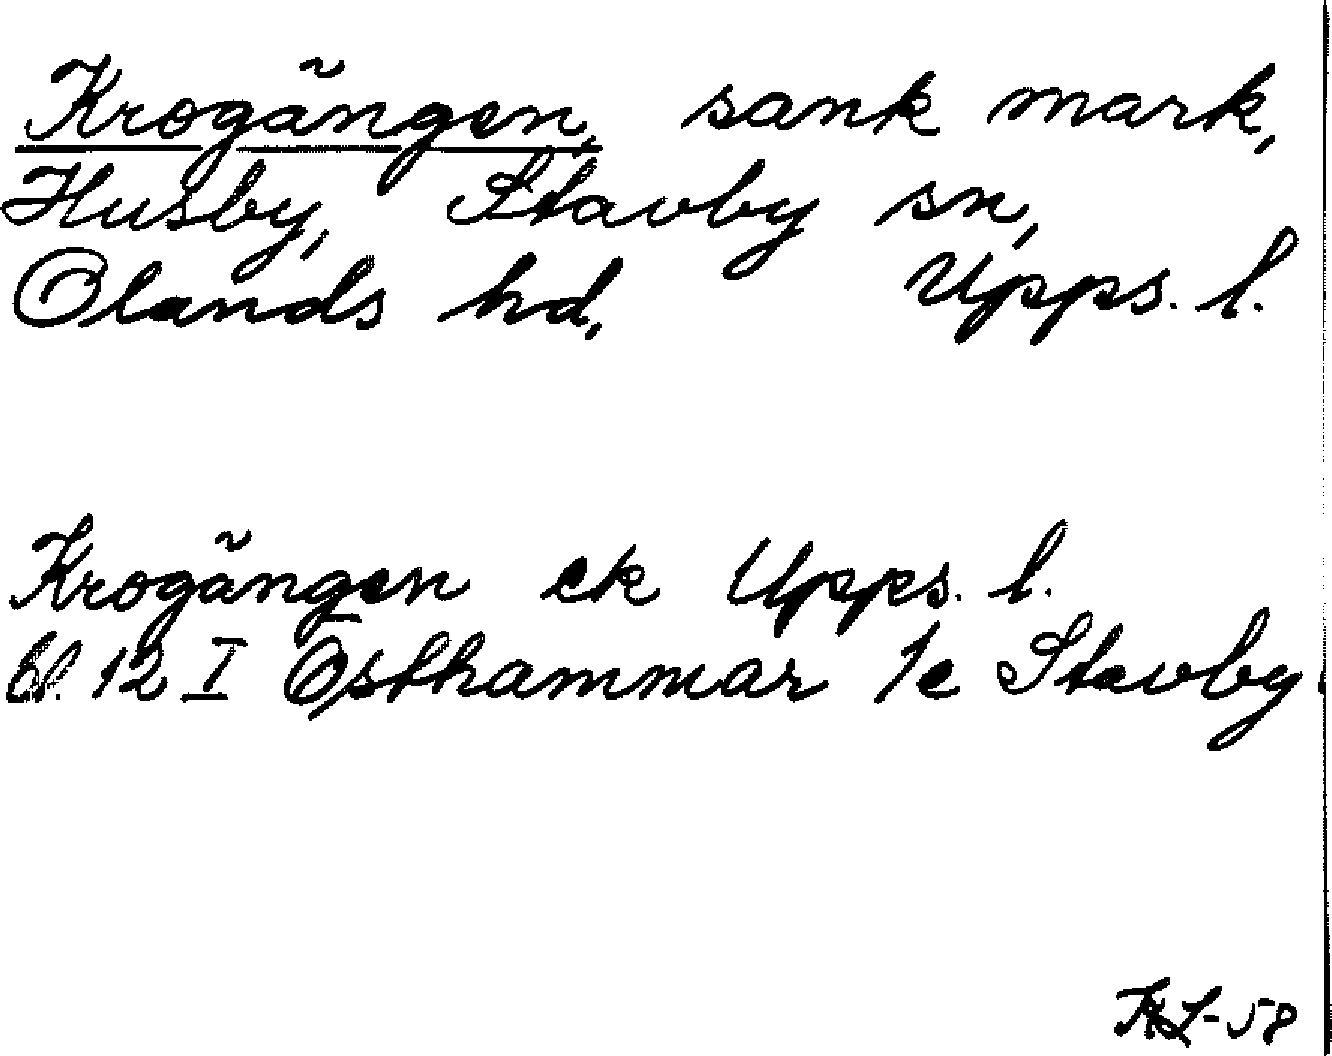 Krogängen, sank mark,
Husby, Stavby sn,
Olands hd, Upps. l.
Krogängen ek Upps. l.
bl. 12 I Östhammar 1e Stavby